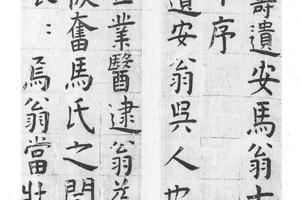 壽遺安馬翁
序
遺安翁吳人也
業醫逮翁
奮馬氏之閭
焉翁當壯